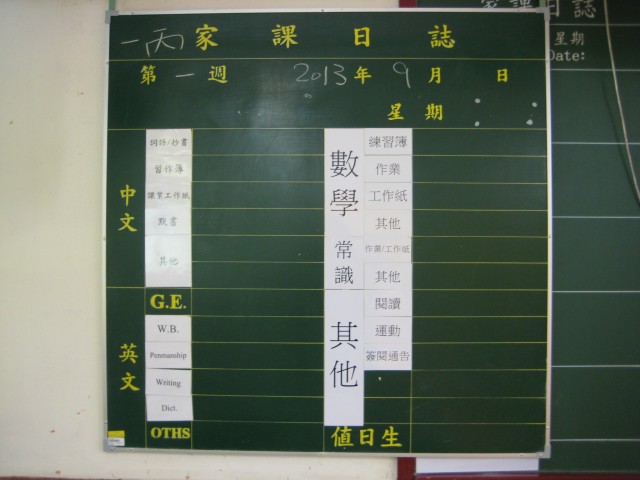 一丙家課日誌
第一週 2013年9月 日
星期 :
中文
詞語/抄書
習作簿
課業工作紙
默書
其他
英文
G.E.
W.B.
Penmanship
Writing
Dict.
OTHS
數學
練習簿
作業
工作紙
其他
常識
作業/工作紙
其他
其他
閱讀
運動
簽閱通告
值日生
家課日誌
星期
Date: